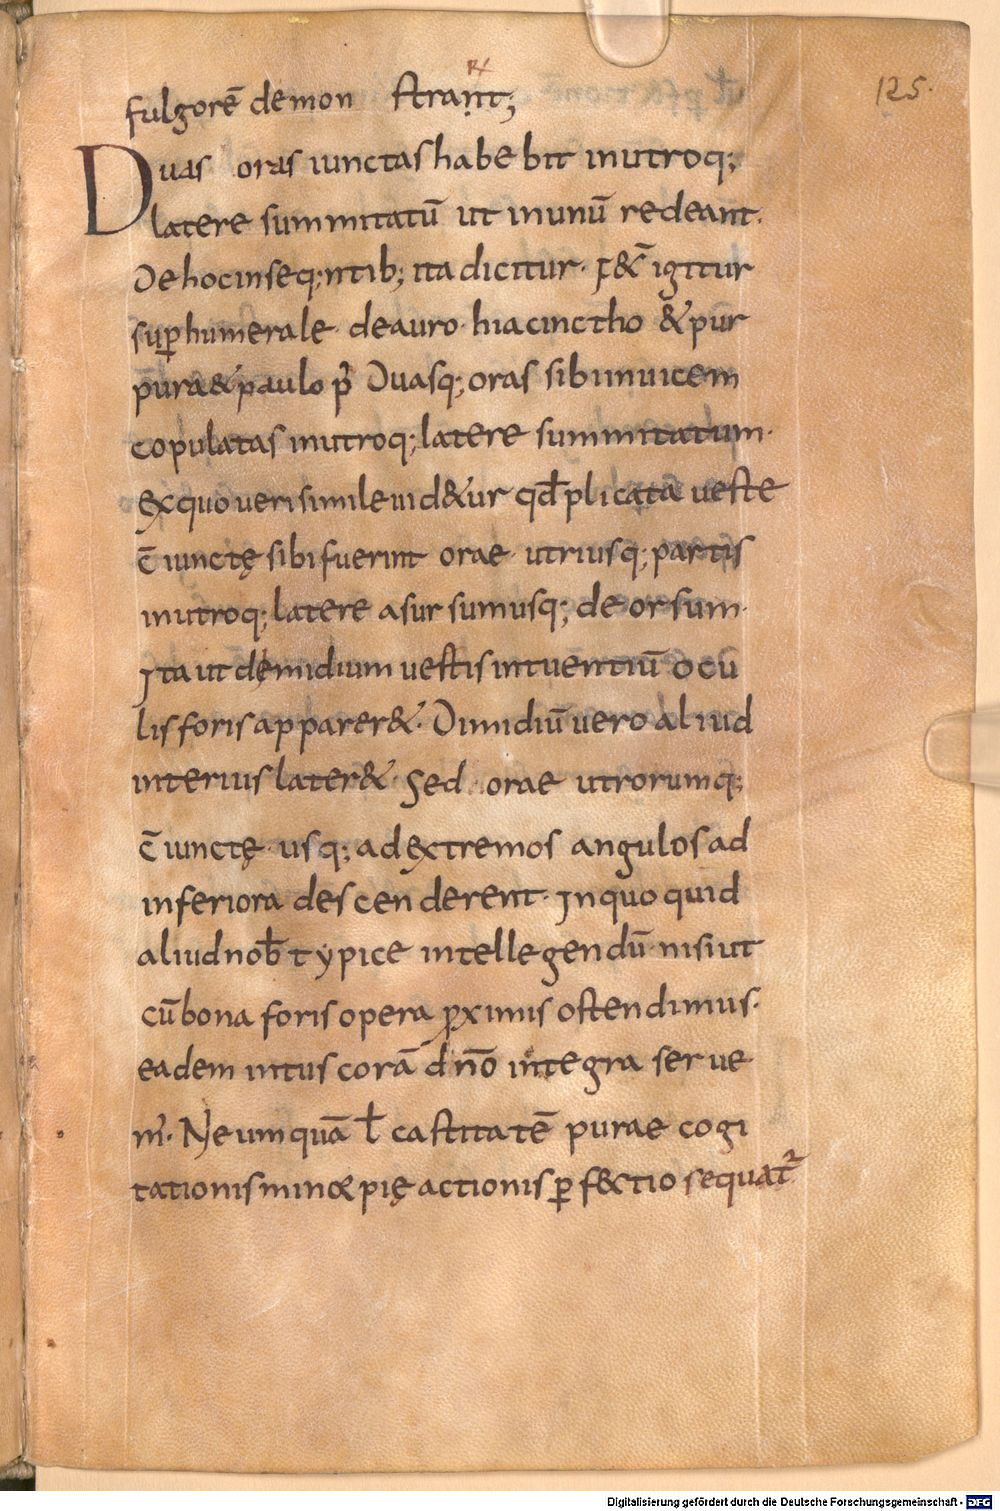 125.
fulgorē demon strant;
Duas oras iunctas habebit inutroq;
latere summitatū ut inunū redeant.
De hoc inseq;ntib; ita dicitur. f&̄ igitur
sup̱humerale. deauro. hiacinctho & pur
pura & paulo p̄. Duasq; oras sibi inuicem
copulatas inutroq; latere summitatum.
Ex quo ueri simile uid&ur qđ plicata ueste
c̄iunctę sibi fuerint orae. utriusq; partis
inutroq; latere asursumusq; deorsum.
Ita ut demidium uestis intuentiū ocu
lis foris apparer&. Dimidiū uero aliud
interius later&. Sed orae utrorumq;
c̄iunctę. usq; ad extremos angulos ad
inferiora descenderent. In quo quid
aliud nob̄ typice intellegendū nisi ut
cū bona foris opera p̱ximis ostendimus.
eadem intus corā dn̄o integra serue
m̄. Ne umquā ł castitatē purae cogi
tationis minor pię actionis p̱f&ctio sequat᷑
Digitalisierung gefördert durch die Deutsche Forschungsgemeinschaft - DFG